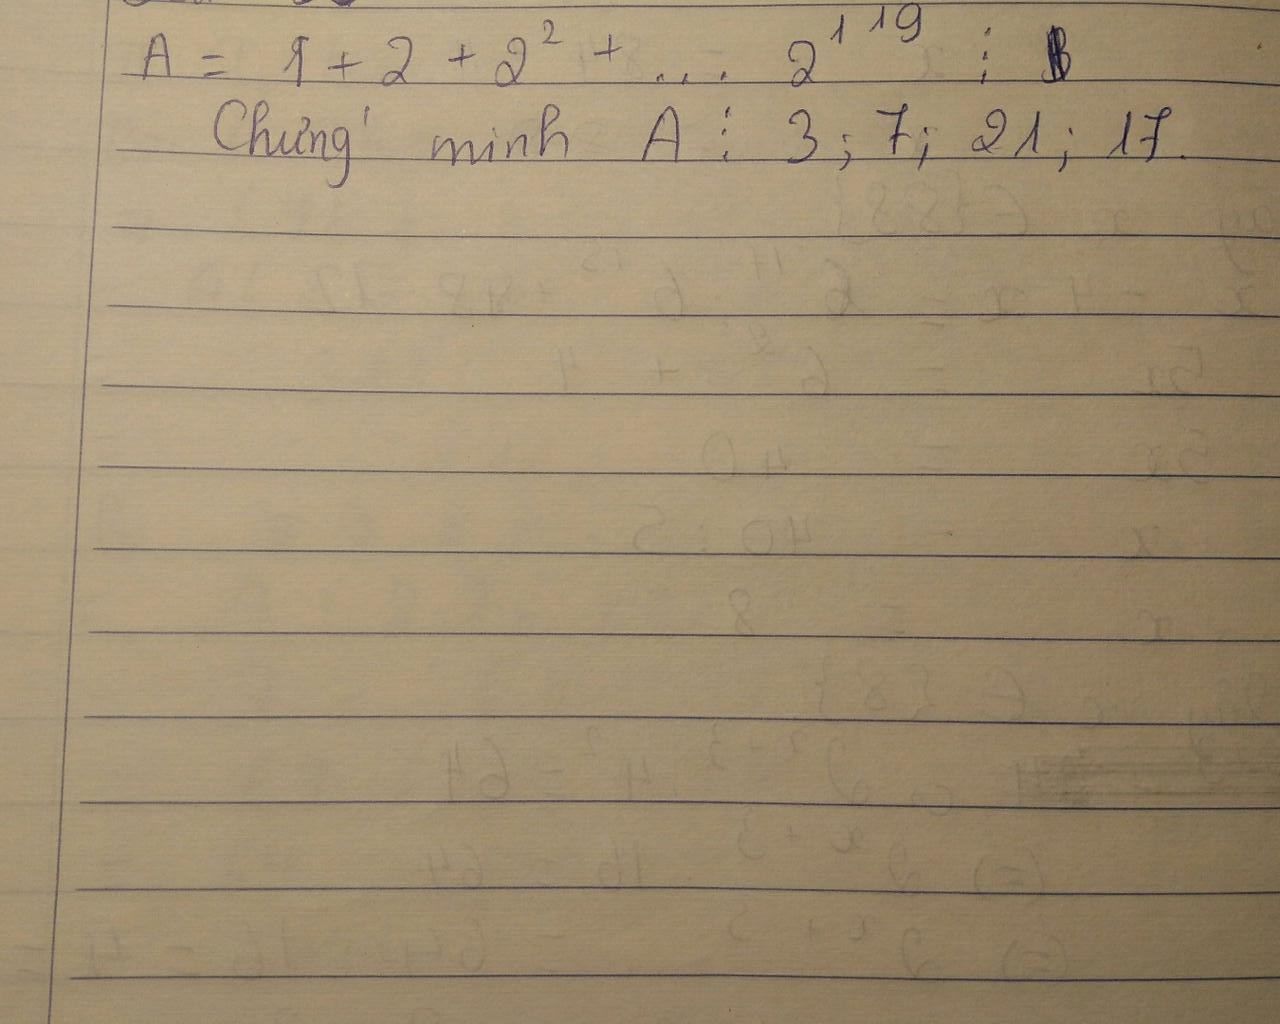 A = 1 + 2 + 2² + ... 2¹¹⁹ ⋮
Chứng minh A ⋮ 3; 7; 21; 17.